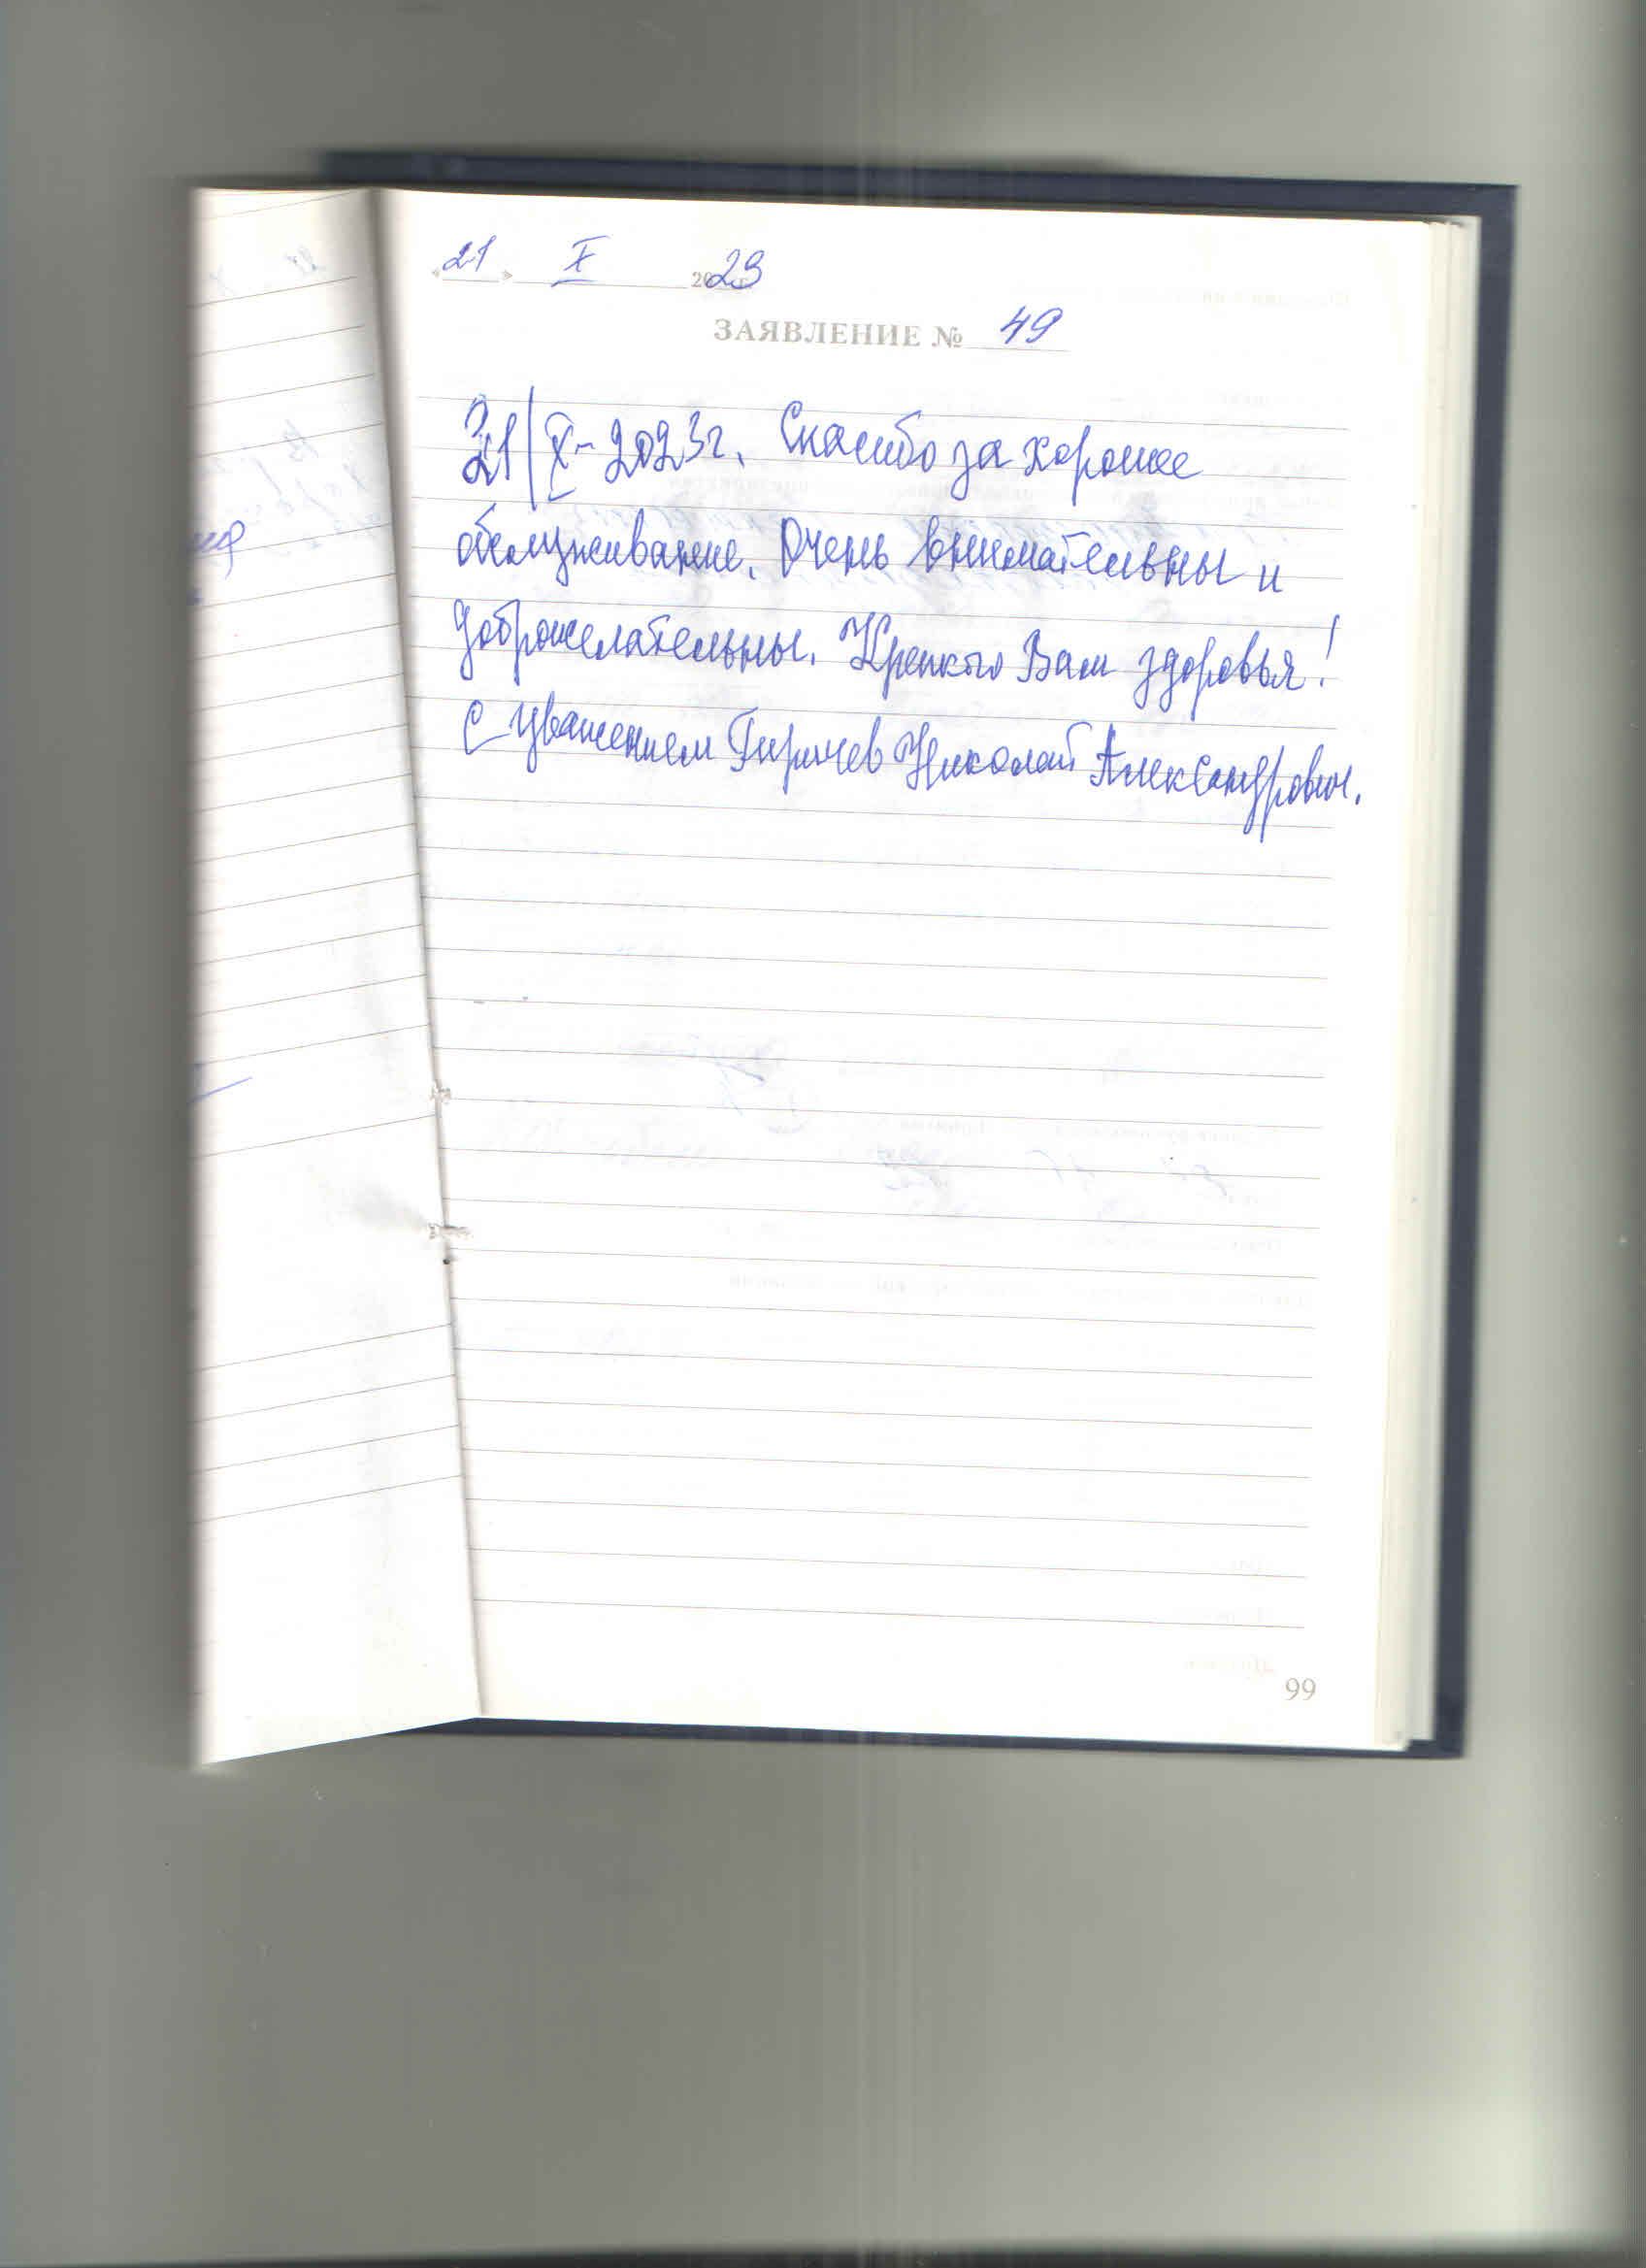 «21» X 2023
ЗАЯВЛЕНИЕ № 49
21/X-2023г. Спасибо за хорошее
обслуживание. Очень внимательны и
доброжелательны. Крепкого Вам здоровья!
С уважением Николай Александрович.
99